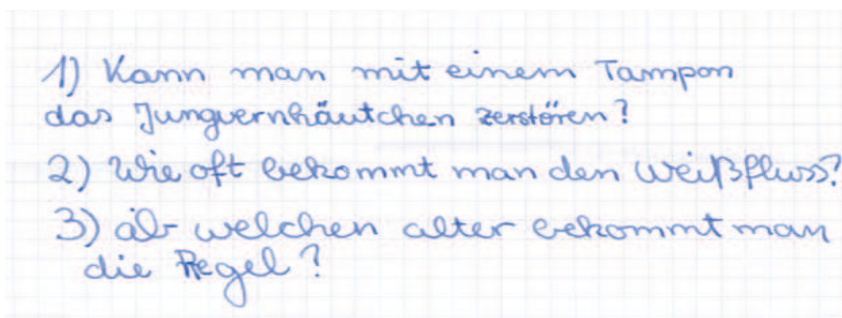 1) Kann man mit einem Tampon
das Jungvernhäutchen zerstören?
2) Wie oft bekommt man den Weißfluss?
3) äb welchen alter bekommt man
die Regel?